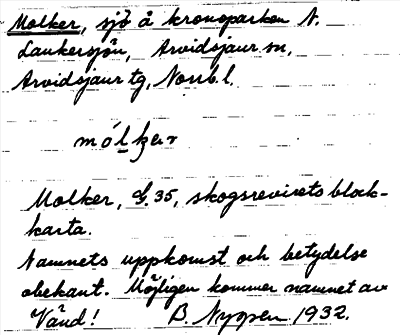 Molker, sjö å kronoparken N.
Lankersjön, Arvidsjaur sn,
Arvidsjaur tg, Norrb. l.
mólkər
Molker, G. 35, skogsrevirets block-
karta.
Namnets uppkomst och betydelse
obekant. Möjligen kommer namnet av
Vänd! B. Nyppen 1932.